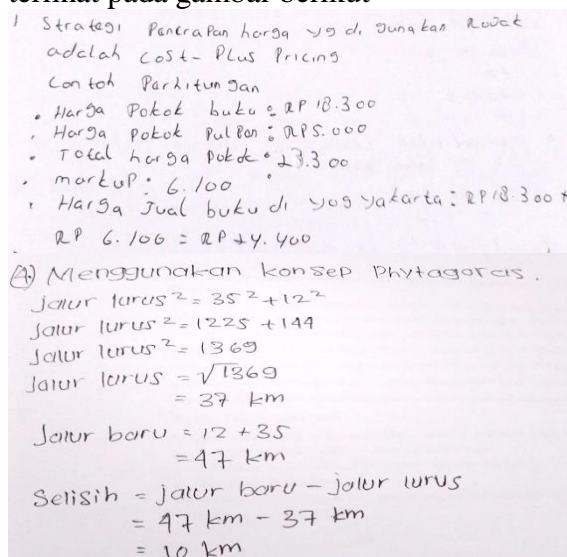 terlihat pada gambar berikut
1 Strategi Penerapan harga yg di gunakan Rowat
adalah cost-Plus Pricing
Contoh Perhitungan
• Harga Pokok buku : RP 18.300
• Harga Pokok Pulpen : RP5.000
• Total harga Pokok : 23.300
• markup : 6.100
• Harga Jual buku di yogyakarta : RP 18.300 +
RP 6.100 = RP 24.400
4) Menggunakan konsep Phytagoras.
jalur lurus² = 35² + 12²
Jalur lurus² = 1225 + 144
Jalur lurus² = 1369
Jalur lurus = √1369
= 37 km
Jalur baru = 12 + 35
= 47 km
Selisih = jalur baru – jalur lurus
= 47 km – 37 km
= 10 km